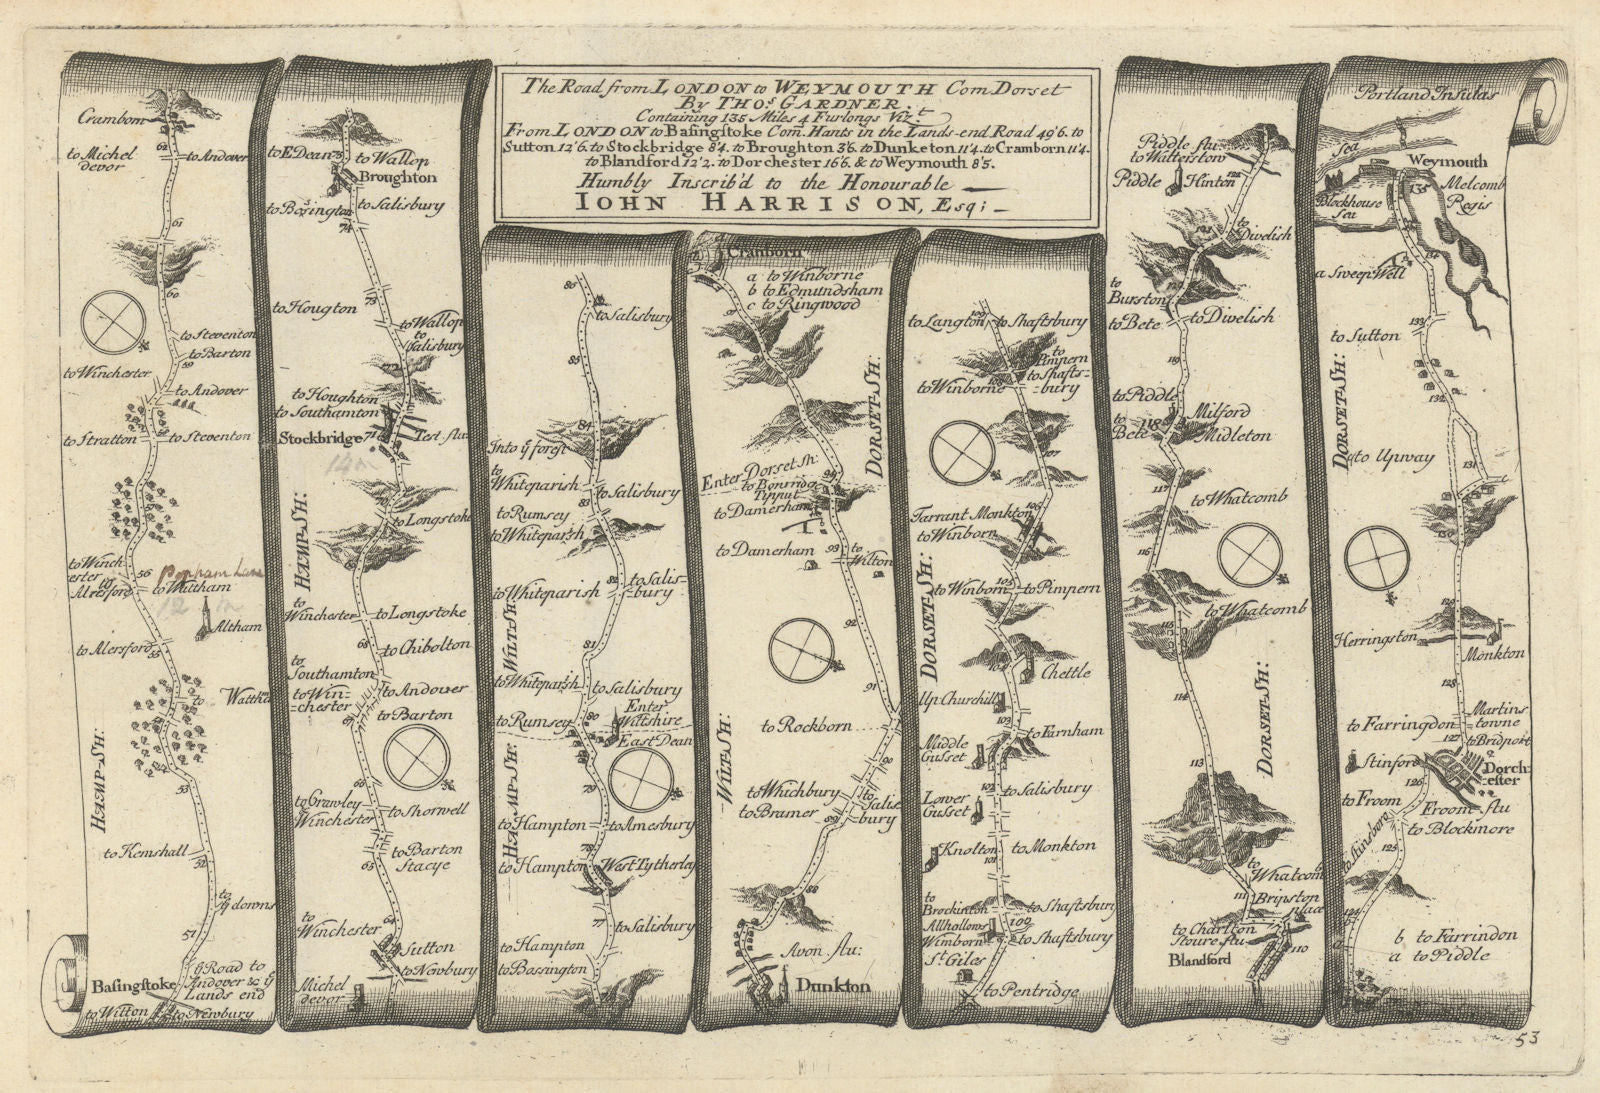 The Road from LONDON to WEYMOUTH Com Dorset
By THOs. GARDNER.
Containing 135 Miles 4 Furlongs Vizt.
From LONDON to Basingstoke Com. Hants in the Lands-end Road 49'6. to
Sutton 12'6. to Stockbridge 8'4. to Broughton 3'6. to Dunketon 11'4. to Cramborn 11'4.
to Blandford 12'2. to Dorchester 16'6. & to Weymouth 8'5.
Humbly Inscrib'd to the Honourable
IOHN HARRISON, Esq;
Cramborn
62
to Michel
devor
to Andover
61
60
to Steventon
to Barton
59
to Winchester
to Andover
to Stratton
to Steventon
to Winch
ester
to
Alresford
56
Popham Lane
to Waltham
Altham
to Alersford
55
to
HAMP-SH:
53
to Kemshall
52
to
ye downs
51
Basingstoke
ye Road to
Andover &c ye
Lands end
to Witton
to Newbury
to E Dean
75
to Wallop
Broughton
to Bosington
to Salisbury
74
to Hougton
73
to Wallop
to
Salisbury
72
to Houghton
to Southamton
Stockbridge
71
Test flu
14 m
HAMP-SH:
70
to Longstoke
to
Winchester
to Longstoke
68
to Chibolton
to
Southamton
to Win-
chester
to Andover
to Barton
66
to Crawley
Winchester
to Shorwell
65
to Barton
Stacye
to
Winchester
64
Sutton
to Newbury
Michel
devor
86
to Salisbury
85
84
Into ye forest
to
Whiteparish
to Salisbury
83
to Rumsey
to Whiteparish
82
to Whiteparish
to Salis-
bury
WILT-SH:
81
to Whiteparish
to Salisbury
80
Enter
Wiltshire
to Rumsey
East Dean
HAMP-SH:
79
to Hampton
to Amesbury
78
to Hampton
West Tytherley
77
to Salisbury
to Hampton
to Bassington
Cranborn
a to Winborne
b to Edmundsham
c to Ringwood
DORSET-SH:
Enter Dorset sh:
to Bonridge
Tipput
to Damerham
94
93
to Damerham
to
Wilton
92
91
to Rockborn
WILT-SH:
90
to Whichbury
to Bramer
to
Salis
bury
89
88
Avon flu:
Dunkton
109
to Langton
to Shaftsbury
to
Pimpern
to Shafts-
bury
to Winborne
107
Tarrant Monkton
106
to Winborn
105
to Winborn
to Pimpern
DORSET-SH:
104
Chettle
Up Churchill
103
to Farnham
Middle
Gusset
102
to Salisbury
Lower
Gusset
Knolton
101
to Monkton
to
Brockinton
to Shaftsbury
Allhallows
Wimborn
100
to Shaftsbury
St. Giles
to Pentridge
Piddle flu
to Watterstow
Piddle
Hinton
122
to
Divelish
to
Burston
to Bete
to Divelish
119
to Piddle
to
Bete
118
Milford
Midleton
117
to Whatcomb
116
to Whatcomb
115
114
DORSET-SH:
113
to
Whatcomb
111
Bripston
place
to Charlton
Stoure flu
Blandford
110
Portland Insulas
Sea
Weymouth
135
Blockhouse
Sea
Melcomb
Regis
134
a Sweep Well
133
to Sutton
132
DORSET-SH:
to Upway
131
130
129
Herringston
Monkton
128
to Farringdon
Martins
towne
127
to Bridport
Stinford
126
Dorch-
ester
to Froom
Froom flu
to Blockmore
to Stinsbora
125
124
b to Farrindon
a to Piddle
53